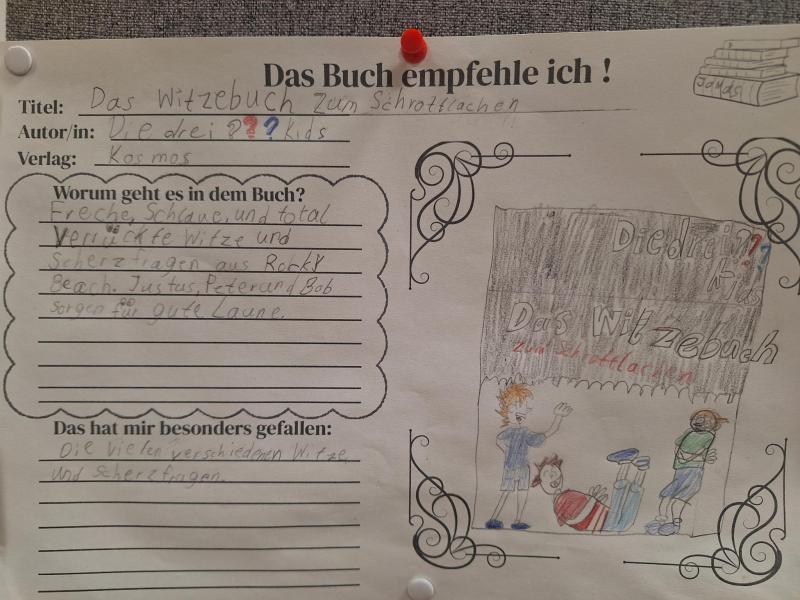 Das Buch empfehle ich !
Jonas
Titel: Das Witzebuch zum Schrottlachen
Autor/in: Die drei ??? Kids
Verlag: Kosmos
Worum geht es in dem Buch?
Freche, Schlaue, und total
verrückte Witze und
Scherzfragen aus Rocky
Beach. Justus, Peter und Bob
sorgen für gute Laune.
Das hat mir besonders gefallen:
Die vielen verschiedenen Witze
und Scherzfragen.
Die drei ???
Kids
Das Witzebuch
zum Schrottlachen